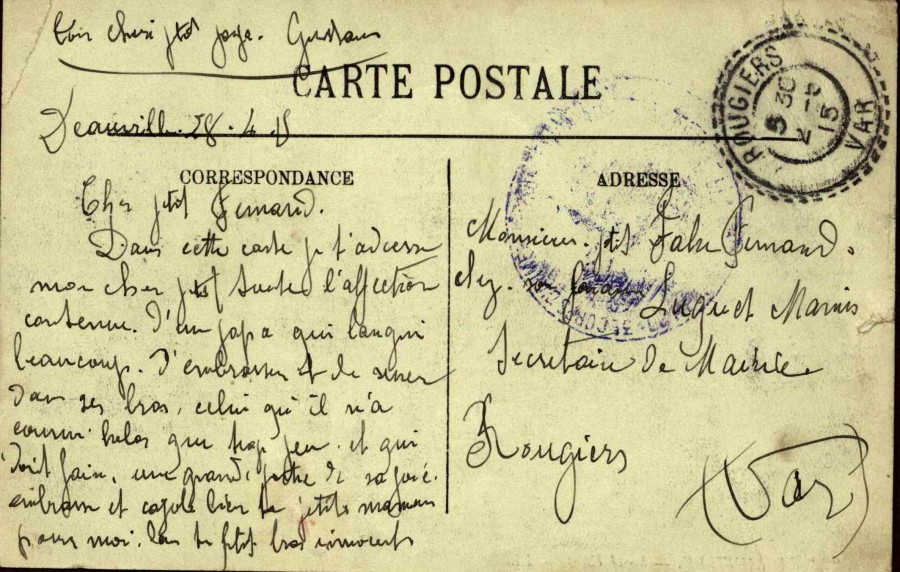 Ton cheri ptit papa. Gustave
CARTE POSTALE
Deauville. 28. 4. 15
CORRESPONDANCE
Cher ptit Fernand.
Dans cette carte je t'adresse
mon cher ptit toutes l'affection
contenue. D'un papa qui langui
beaucoup. D'embrasser et de serrer
dans ses bras, celui qu'il n'a
connu helas que trop peu. et qui
doit faire, une grande partie de sa joie.
embrasse et cajole bien ta ptite maman
pour moi. dans te ptit bras innocents
ROUGIERS
5 30
2 - 5
15
VAR
ADRESSE
Monsieur. ptit Fabre Fernand.
chez. son Luquet Marius
Secretaire de Mairie
Rougiers
(Var)